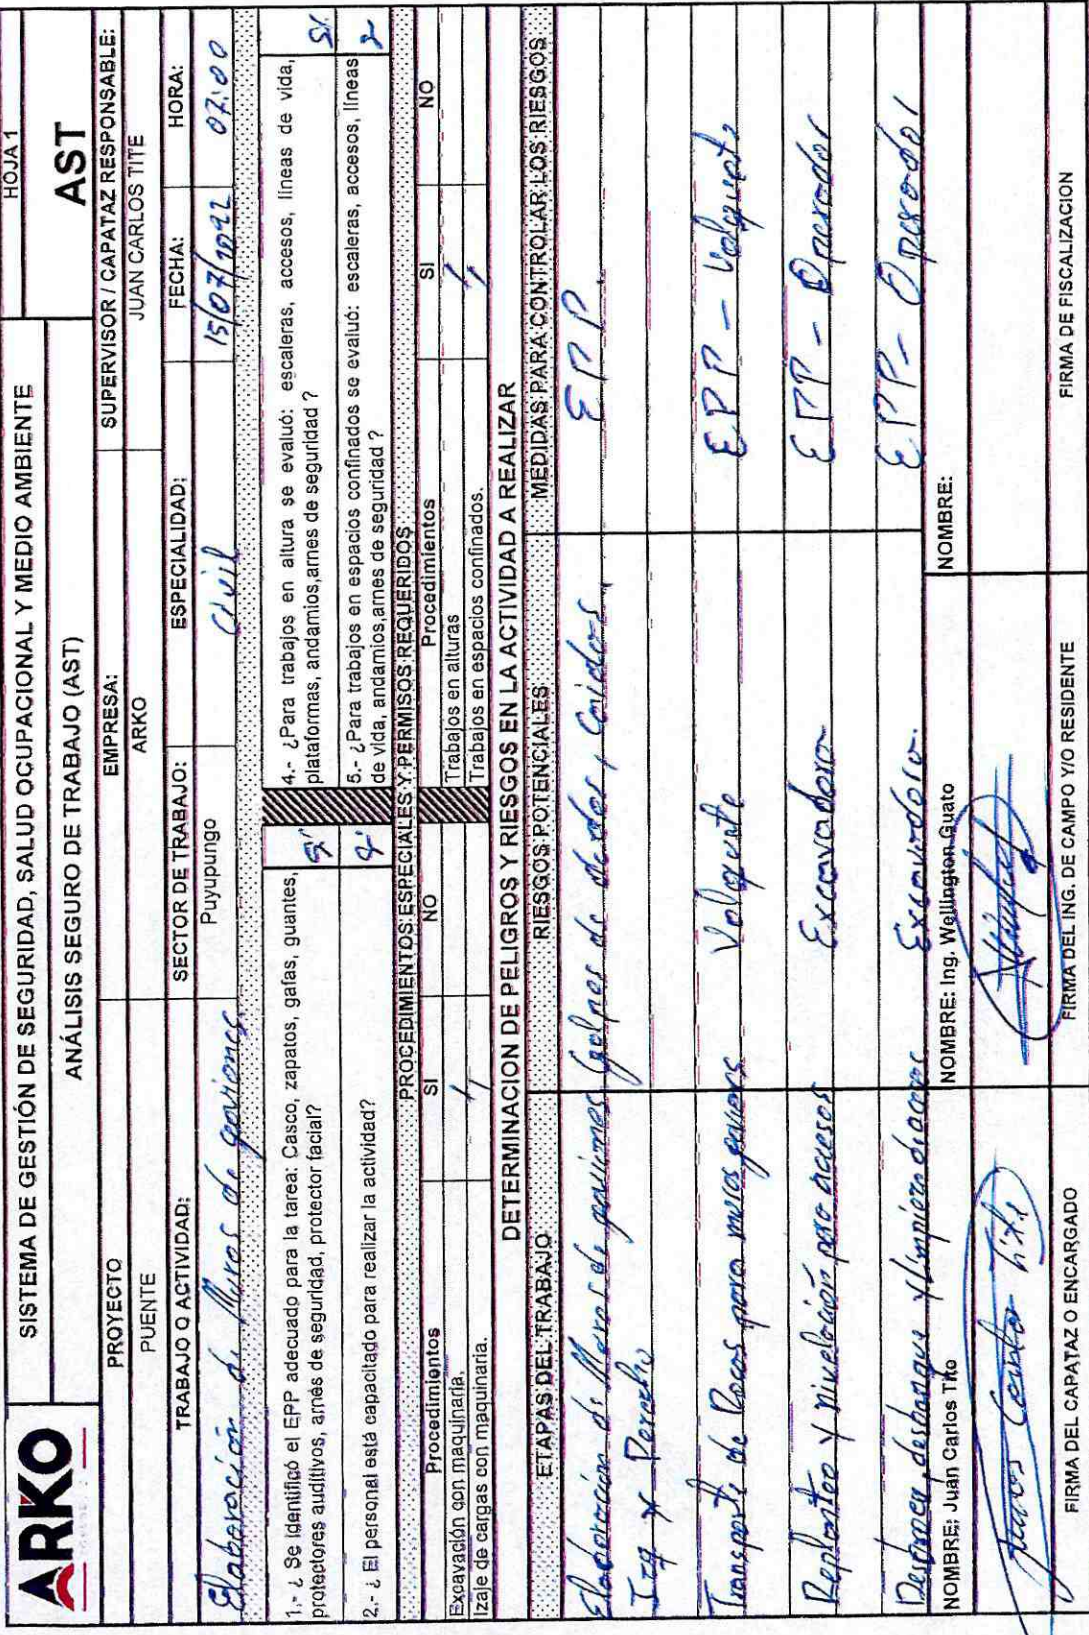 ARKO
SISTEMA DE GESTIÓN DE SEGURIDAD, SALUD OCUPACIONAL Y MEDIO AMBIENTE
HOJA 1
ANÁLISIS SEGURO DE TRABAJO (AST)
AST
PROYECTO
EMPRESA:
SUPERVISOR / CAPATAZ RESPONSABLE:
PUENTE
ARKO
JUAN CARLOS TITE
TRABAJO O ACTIVIDAD:
SECTOR DE TRABAJO:
ESPECIALIDAD:
FECHA:
HORA:
Elaboración de Muros de gaviones
Puyupungo
Civil
15/07/2022
07:00
1.- ¿ Se identificó el EPP adecuado para la tarea: Casco, zapatos, gafas, guantes,
protectores auditivos, arnés de seguridad, protector facial?
Si
4.- ¿Para trabajos en altura se evaluó: escaleras, accesos, líneas de vida,
plataformas, andamios,arnes de seguridad ?
Si
2.- ¿ El personal está capacitado para realizar la actividad?
5.- ¿Para trabajos en espacios confinados se evaluó: escaleras, accesos, líneas
de vida, andamios,arnes de seguridad ?
PROCEDIMIENTOS ESPECIALES Y PERMISOS REQUERIDOS
Procedimientos
SI
NO
Procedimientos
SI
NO
Excavación con maquinaria.
Trabajos en alturas
Izaje de cargas con maquinaria.
Trabajos en espacios confinados.
DETERMINACION DE PELIGROS Y RIESGOS EN LA ACTIVIDAD A REALIZAR
ETAPAS DEL TRABAJO
RIESGOS POTENCIALES
MEDIDAS PARA CONTROLAR LOS RIESGOS
Elaboración de Muros de gaviones
Golpes de dedos, Caidas
EPP.
Izq y Derecho
Transporte de Rocas para muros gaviones
Volquete
EPP - Volquete
Replanteo y nivelación para accesos
Excavadora
EPP - Operador
Desbroce, desbanque y limpieza de accesos
Excavadora.
EPP - Operador
NOMBRE: Juan Carlos Tite
NOMBRE: Ing. Wellington Guato
NOMBRE:
Juan Carlos Tite
FIRMA DEL CAPATAZ O ENCARGADO
FIRMA DEL ING. DE CAMPO Y/O RESIDENTE
FIRMA DE FISCALIZACION